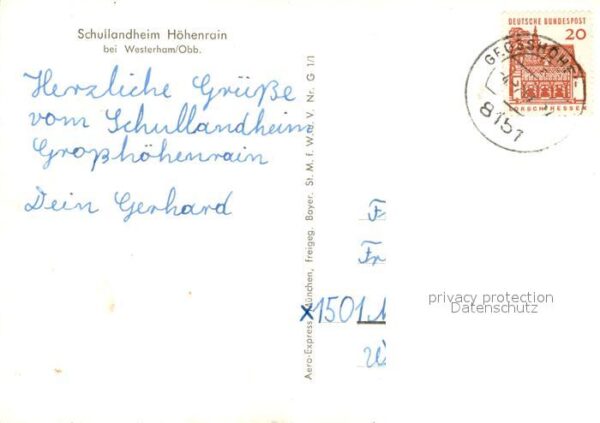 Schullandheim Höhenrain
bei Westerham/Obb.
Herzliche Grüße
vom Schullandheim
Großhöhenrain
Dein Gerhard
Aero-Express München, Freigeg. Bayer. St. M. f. W. u. V. Nr. G 1/1
DEUTSCHE BUNDESPOST
20
LORSCH/HESSEN
GROSSHÖHE
8151
F
Fr
x1501
privacy protection
Datenschutz